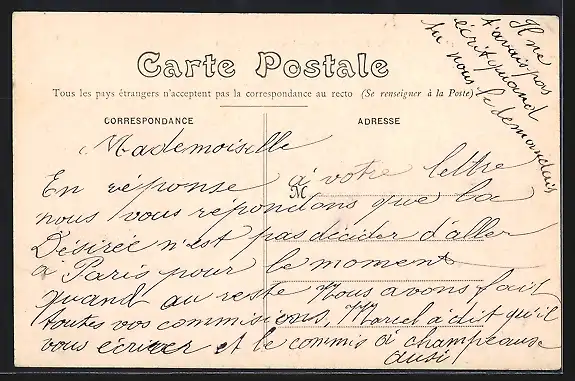 Carte Postale
Tous les pays étrangers n'acceptent pas la correspondance au recto (Se renseigner à la Poste)
CORRESPONDANCE
ADRESSE
M
Mademoiselle
En réponse à votre lettre
nous vous répondons que la
Désirée n'est pas décider d'aller
à Paris pour le moment
quand au reste Nous avons fait
toutes vos commissions, Marcel à dit qu'il
vous écrirer et le commis à champeaux
ausi
Il ne
t'avais pas
écrit quand
tu nous le demandais